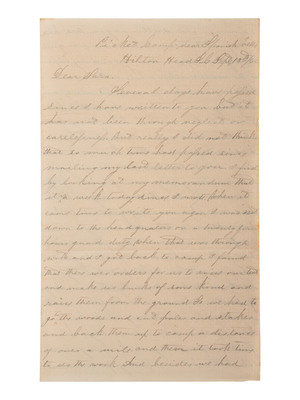 Picket Camp near Spanish Wells
Hilton Head S.C. Sept
Dear Sara.
Several days have passed
since I have written to you but it
has not been through neglect or
carelessness. But really I did not think
that so much time had passed since
mailing my last letter to you. I find
by looking at my memorandum that
it is a week today since I wrote. When it
came time to write you again I was sent
down to the headquarters on a twenty four
hours guard duty. When that was through
with and I got back to camp I found
that there were orders for us to raise our tents
and make us bunks of some kind and
raise them from the ground. So we had to
go the woods and cut poles and stakes
and back them up to camp a distance
of over a mile and then it took time
to do the work. And besides we had